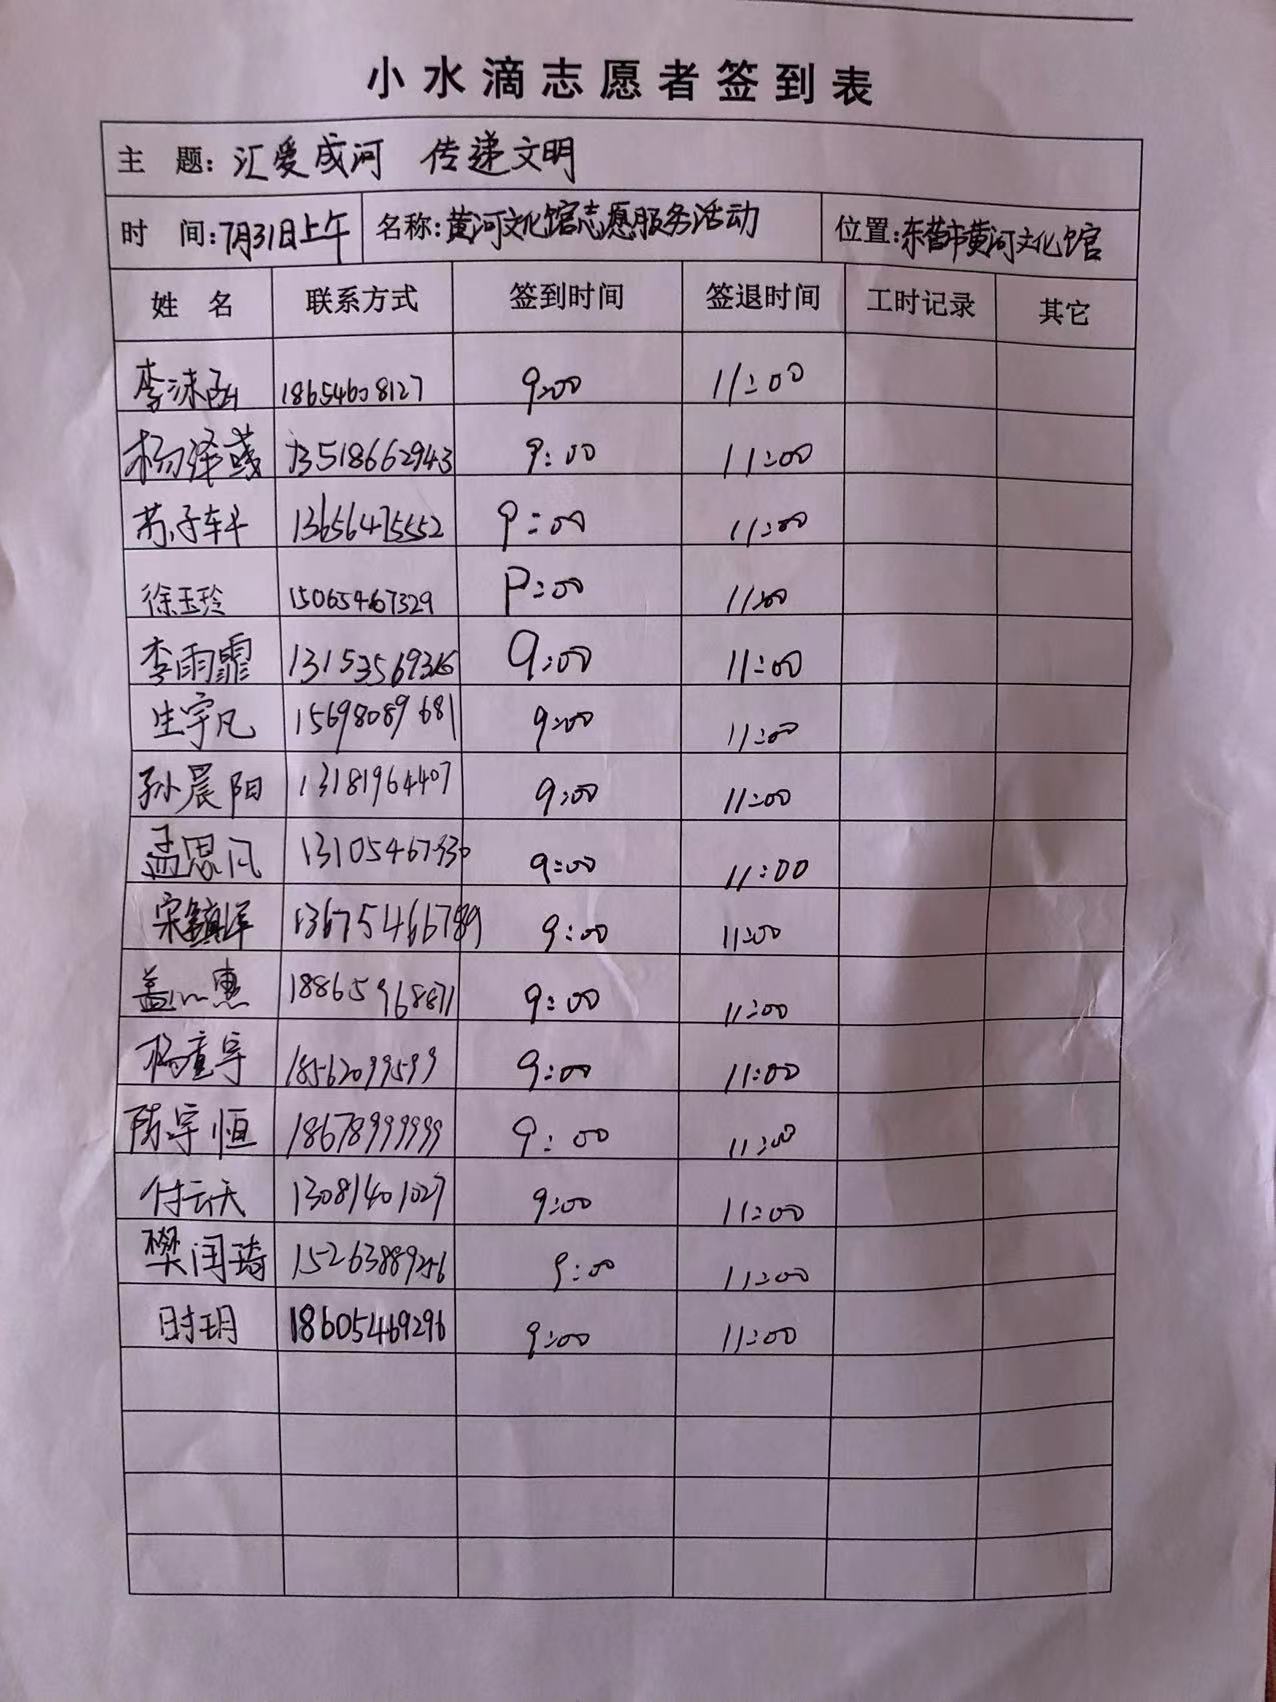 小水滴志愿者签到表
主 题: 汇爱成河 传递文明
时 间: 7月31日上午 名称: 黄河文化馆志愿服务活动 位置: 东营市黄河文化馆
姓 名 联系方式 签到时间 签退时间 工时记录 其它
李沫函 18654608127 9:00 11:00
杨泽彧 13518662943 9:00 11:00
苏子轩 13656475552 9:00 11:00
徐玉玲 15065467329 9:00 11:00
李雨霏 13153569316 9:00 11:00
生宇凡 15698089681 9:00 11:00
孙晨阳 13181964407 9:00 11:00
孟思凡 13105467930 9:00 11:00
宋镇洋 13675466789 9:00 11:00
盖一惠 18865968871 9:00 11:00
杨童宇 18562099599 9:00 11:00
陈宇恒 18678999999 9:00 11:00
付云天 13081401027 9:00 11:00
樊闰琦 15263889256 9:00 11:00
时玥 18605469296 9:00 11:00